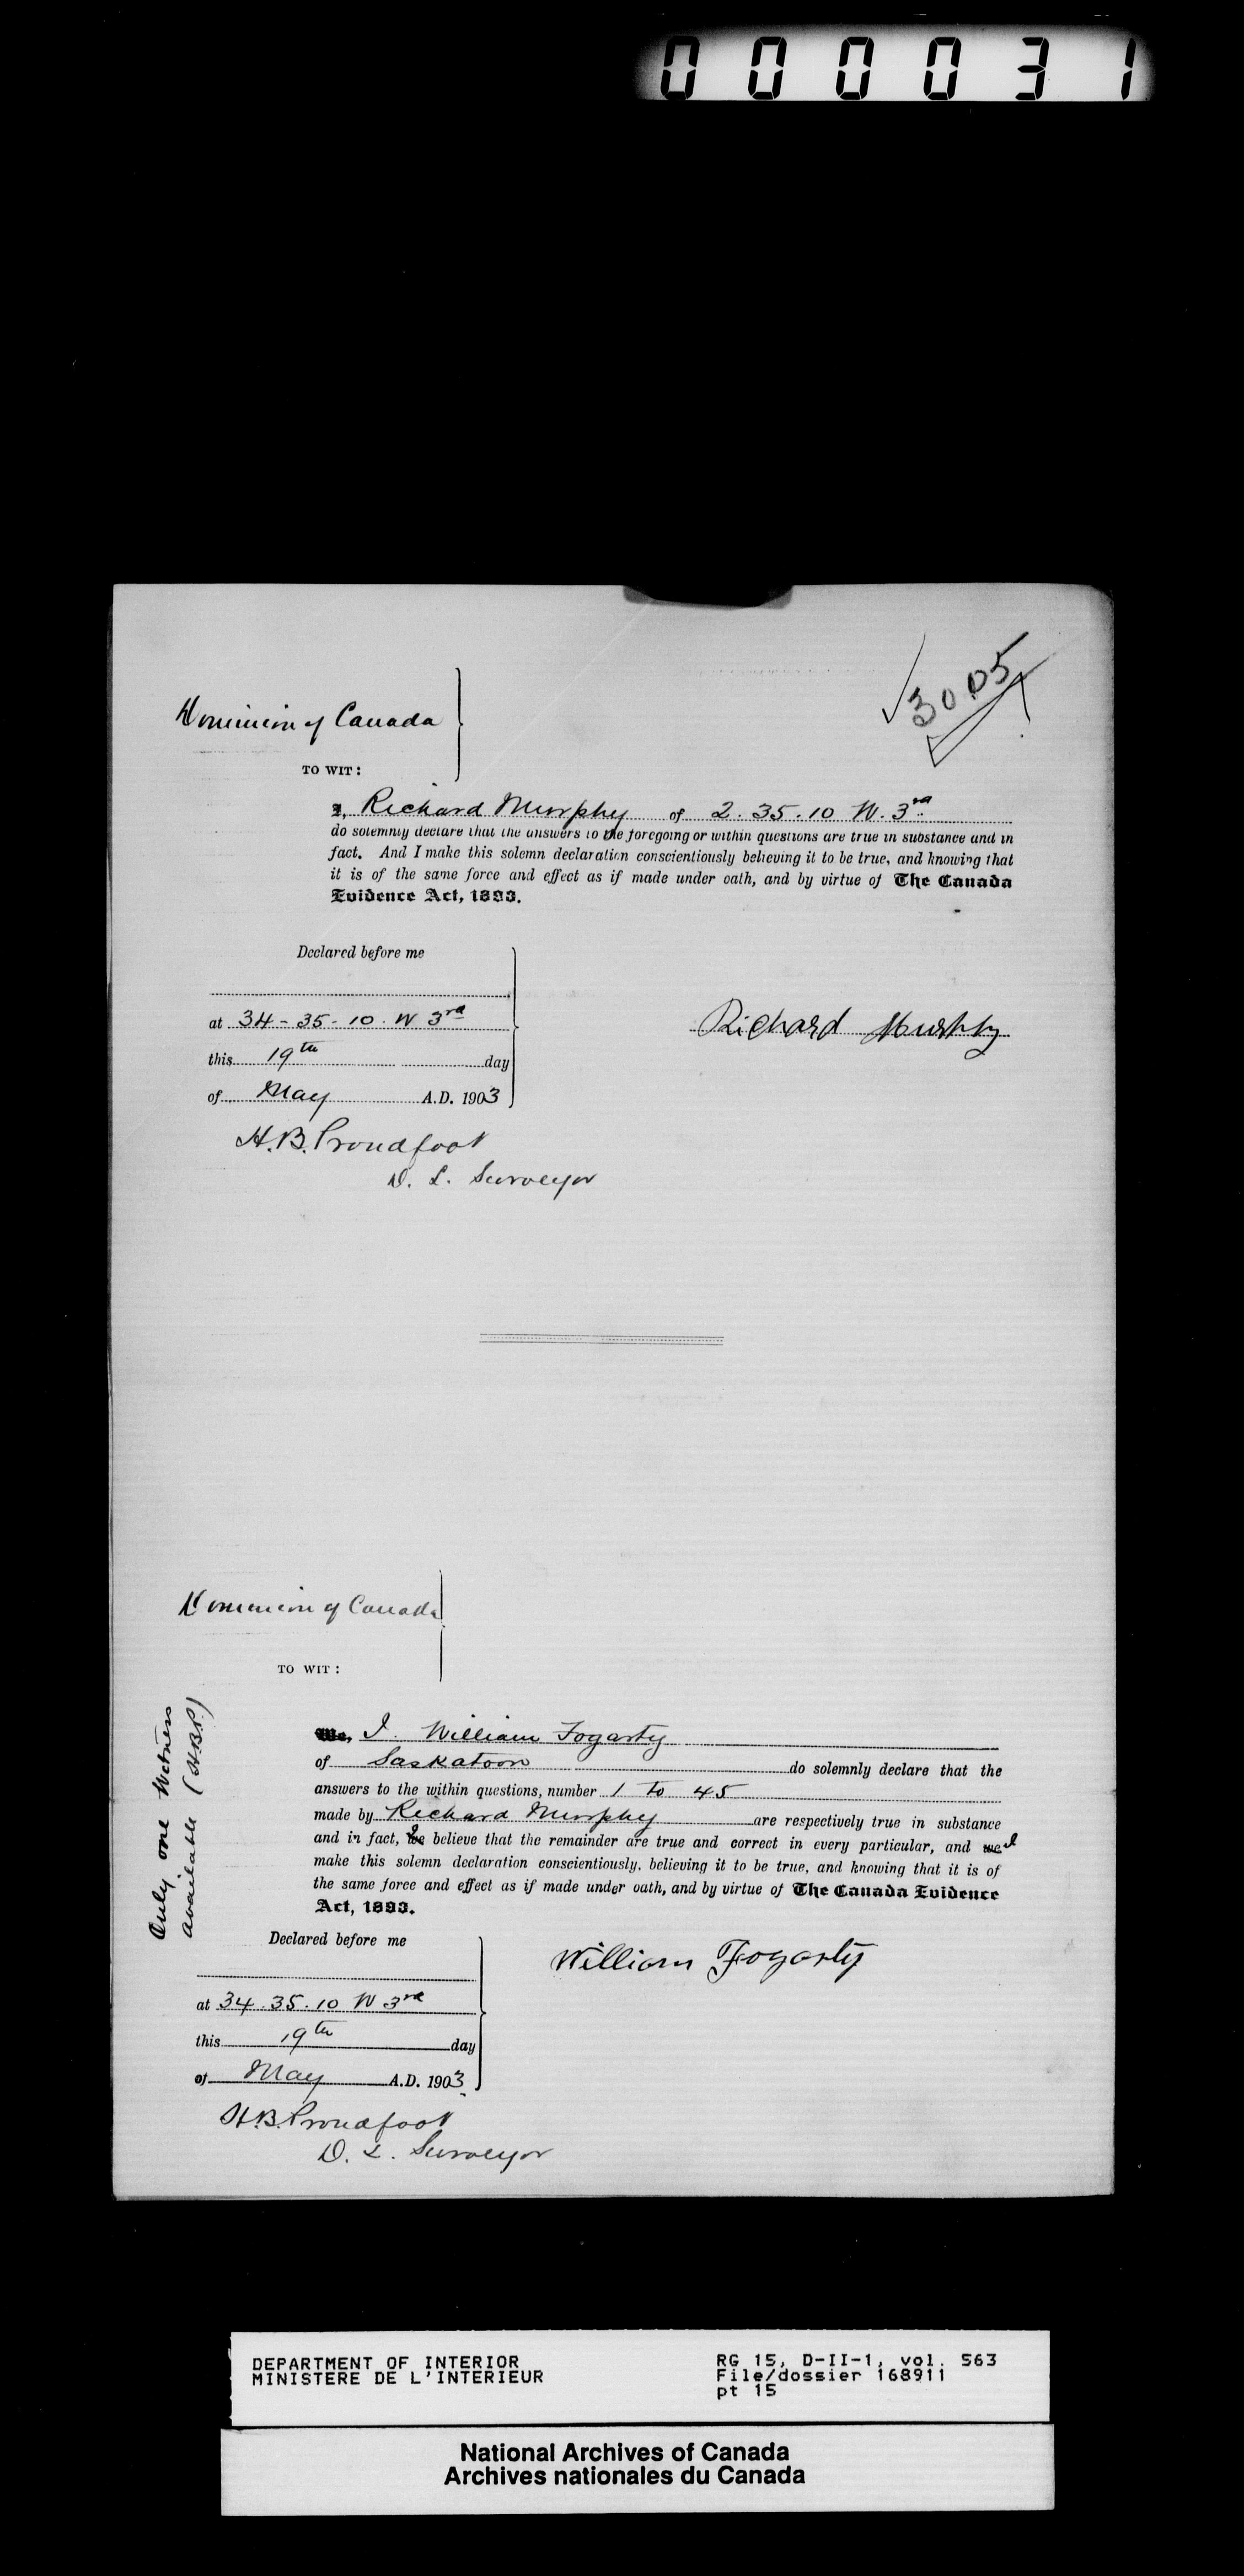 000031
3005
Dominion of Canada
TO WIT:
I, Richard Murphy of 2.35.10 W. 3rd
do solemnly declare that the answers to the foregoing or within questions are true in substance and in
fact. And I make this solemn declaration conscientiously believing it to be true, and knowing that
it is of the same force and effect as if made under oath, and by virtue of The Canada
Evidence Act, 1893.
Declared before me
at 34-35-10. W 3rd
this 19th day
of May A.D. 1903
Richard Murphy
H.B. Proudfoot
D. L. Surveyor
Dominion of Canada
TO WIT:
Only one Witness
available (H.B.P.)
We, I William Fogarty
of Saskatoon do solemnly declare that the
answers to the within questions, number 1 to 45
made by Richard Murphy are respectively true in substance
and in fact, I believe that the remainder are true and correct in every particular, and we I
make this solemn declaration conscientiously, believing it to be true, and knowing that it is of
the same force and effect as if made under oath, and by virtue of The Canada Evidence
Act, 1893.
Declared before me
William Fogarty
at 34.35.10 W 3rd
this 19th day
of May A.D. 1903
H.B. Proudfoot
D. L. Surveyor
DEPARTMENT OF INTERIOR
MINISTERE DE L'INTERIEUR
RG 15, D-II-1, vol. 563
File/dossier 168911
pt 15
National Archives of Canada
Archives nationales du Canada